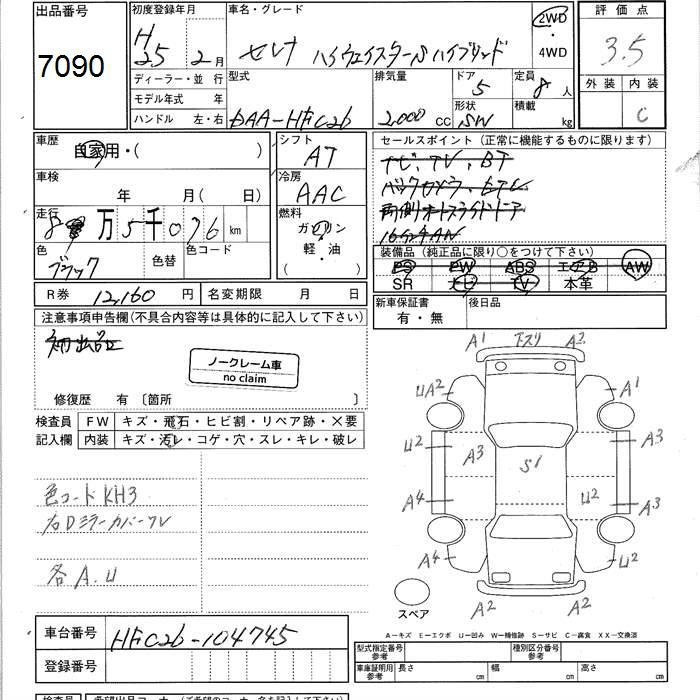 出品番号
7090
初度登録年月
H 25 年 2 月
ディーラー・並 行
モデル年式 年
ハンドル 左・右
車名・グレード
セレナ ハイウェイスターS ハイブリッド
2WD
・
4WD
評 価 点
3.5
外 装 内 装
C
型式
DAA-HFC26
排気量
2,000 cc
ドア
5
形状
SW
定員
8 人
積載
kg
車歴
自家用・( )
車検
年 月 ( 日 )
走行
8 万 5 千 0 76 km
色
ブラック
色替
色コード
シフト
AT
冷房
AAC
燃料
ガソリン
軽・油
セールスポイント (正常に機能するものに限ります)
ナビ、TV、BT
バックカメラ、ETC
両側オートスライドドア
装備品 (純正品に限り○をつけて下さい)
PS PW ABS エアB AW
SR ナビ TV 本革
R券 12,160 円 名変期限 月 日
新車保証書
有・無
後日品
注意事項申告欄(不具合内容等は具体的に記入して下さい)
初出品
ノークレーム車
no claim
修復歴 有 〔箇所 〕
検査員
記入欄
FW キズ・飛石・ヒビ割・リペア跡・×要
内装 キズ・汚レ・コゲ・穴・スレ・キレ・破レ
色コード KH3
右Dミラーカバークレ
各 A.U
A1 下スリ A2
UA2 A1
U2 A3 S1 A3
A4 U2 A3
A4 U2
A2 A2
スペア
A－キズ E－エクボ U－凹み W－補修跡 S－サビ C－腐食 XX－交換済
車台番号 HFC26-104745
登録番号
型式指定番号
参考
種別区分番号
参考
車庫証明用
参考
長さ cm 幅 cm 高さ cm